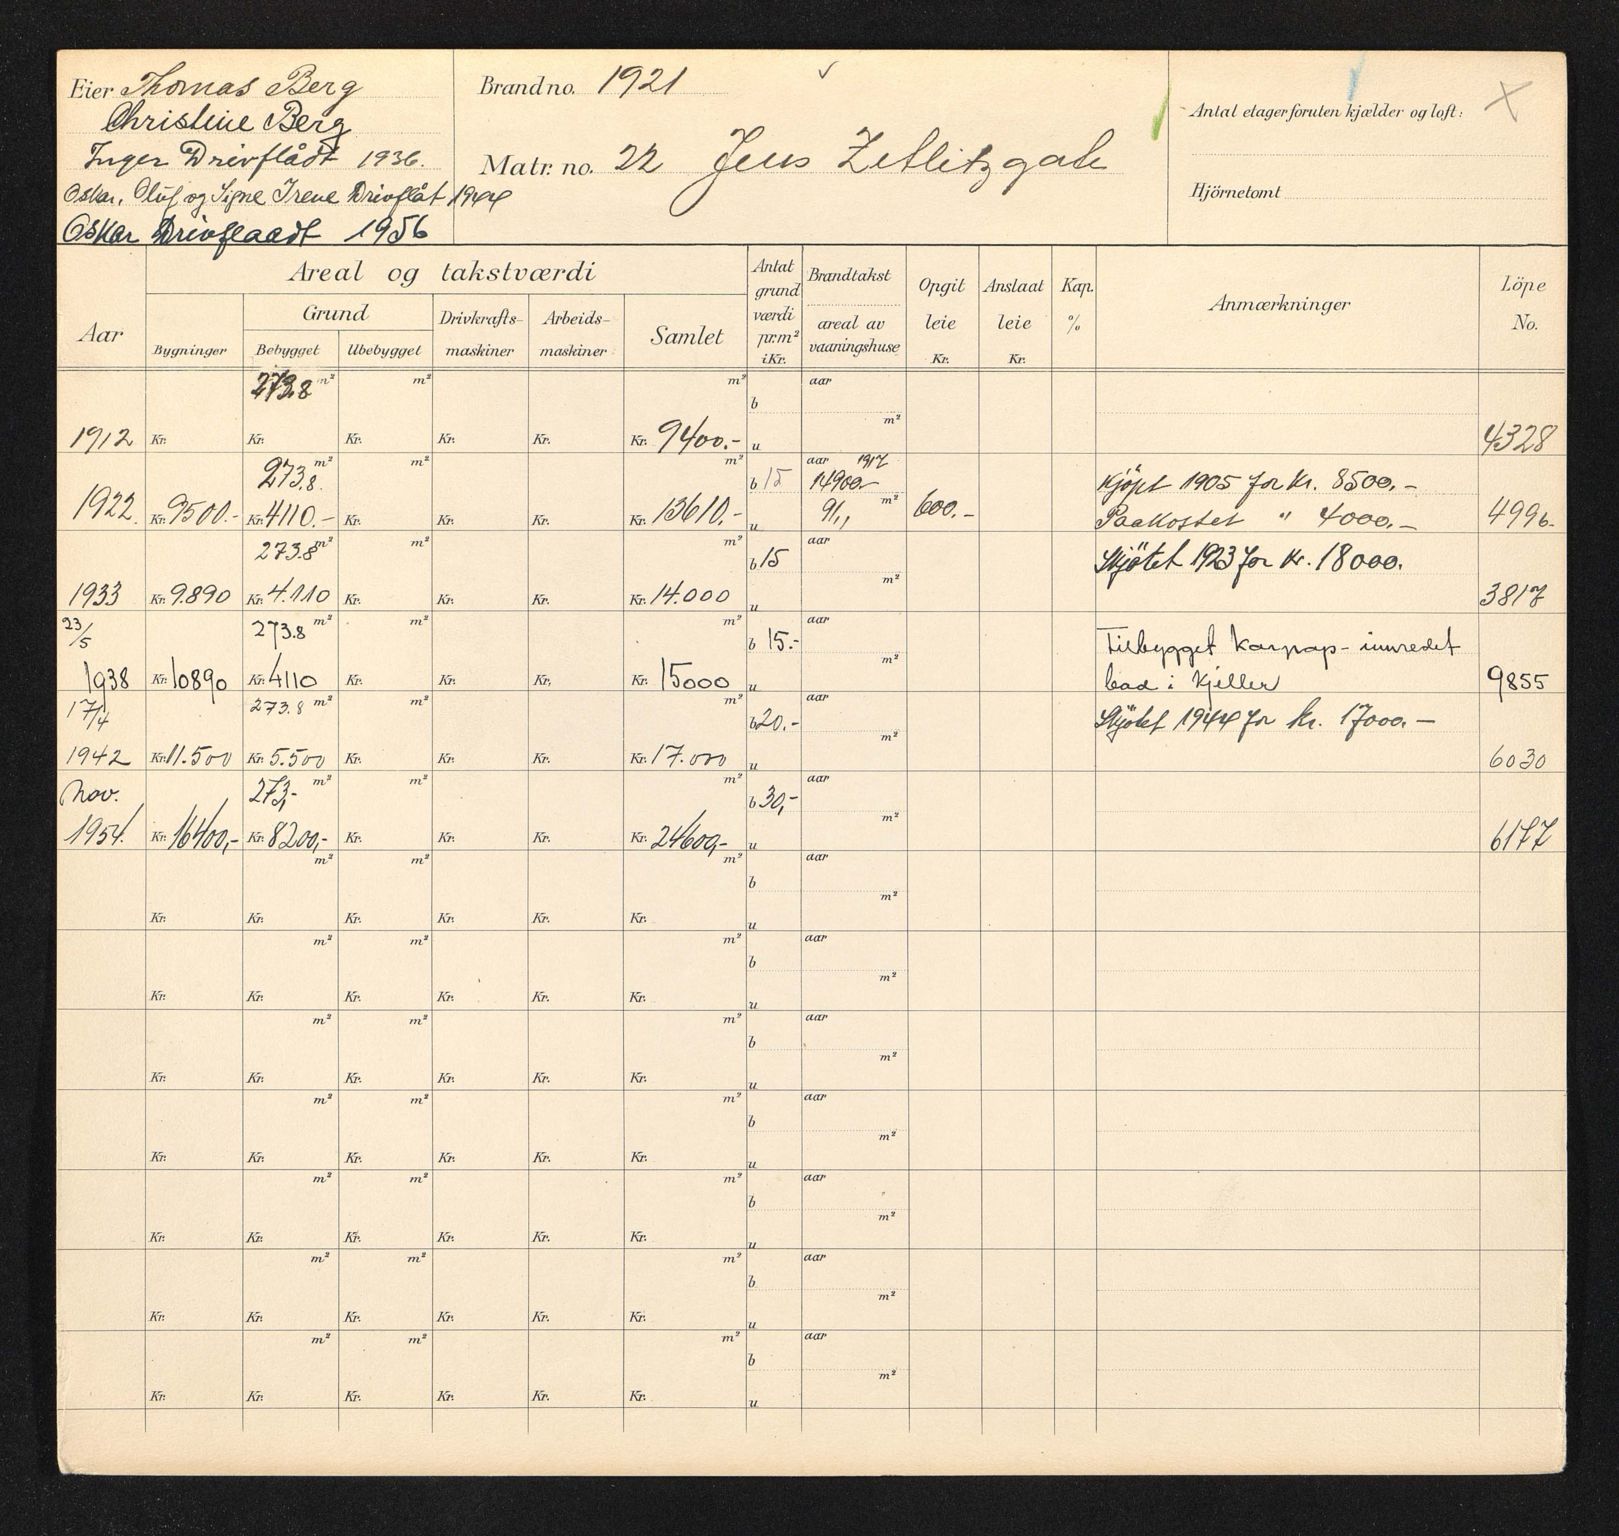 Eier Thomas Berg
Christine Berg
Inger Drivflådt 1936.
Oskar, Oluf og Signe Irene Drivflåt 1944
Oskar Drivflaadt 1956
Brand no. 1921
Matr. no. 22 Jens Zetlitzgate
Antal etager foruten kjælder og loft:
Hjörnetomt
Aar
Areal og takstværdi
Bygninger
Grund
Bebygget Ubebygget
Drivkrafts-
maskiner
Arbeids-
maskiner
Samlet
Antat
grund
værdi
pr. m²
i Kr.
Brandtakst
areal av
vaaningshuse
Opgit
leie
Kr.
Anslaat
leie
Kr.
Kap.
%
Anmærkninger
Löpe
No.
273.8 m² m² m² aar
b
m²
1912 Kr. Kr. Kr. Kr. Kr. Kr. 9400.- u 4328
273.8 m² m² m² b 15 aar 1917
14900.- Kjöpt 1905 for kr. 8500.-
1922. Kr. 9500.- Kr. 4110.- Kr. Kr. Kr. Kr. 13610.- u 91,, m² 600.- Paakostet " 4000.- 4996.
273.8 m² m² m² b 15 aar Skjötet 1923 for kr. 18000.
m²
1933 Kr. 9.890 Kr. 4.110 Kr. Kr. Kr. Kr. 14.000 u 3817
23/5 273.8 m² m² m² b 15.- aar Tilbygget karnap - innredet
m²
1938 Kr. 10890 Kr. 4110 Kr. Kr. Kr. Kr. 15000 u bad i kjeller 9855
17/4 273.8 m² m² m² b 20.- aar Skjötet 1944 for kr. 17000.-
m²
1942 Kr. 11.500 Kr. 5.500 Kr. Kr. Kr. Kr. 17.000 u 6030
Nov. 273,- m² m² m² b 30,- aar
m²
1954. Kr. 16400,- Kr. 8200,- Kr. Kr. Kr. Kr. 24600,- u 6177
m² m² m² aar
b m²
Kr. Kr. Kr. Kr. Kr. Kr. u
m² m² m² aar
b m²
Kr. Kr. Kr. Kr. Kr. Kr. u
m² m² m² aar
b m²
Kr. Kr. Kr. Kr. Kr. Kr. u
m² m² m² aar
b m²
Kr. Kr. Kr. Kr. Kr. Kr. u
m² m² m² aar
b m²
Kr. Kr. Kr. Kr. Kr. Kr. u
m² m² m² aar
b m²
Kr. Kr. Kr. Kr. Kr. Kr. u
m² m² m² aar
b m²
Kr. Kr. Kr. Kr. Kr. Kr. u